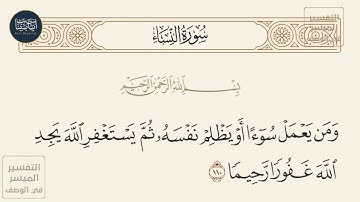 سُورَةُ النِّسَاءِ
التفسير
الميسر
بِسْمِ اللَّهِ الرَّحْمَٰنِ الرَّحِيمِ
وَمَن يَعْمَلْ سُوٓءًا أَوْ يَظْلِمْ نَفْسَهُۥ ثُمَّ يَسْتَغْفِرِ ٱللَّهَ يَجِدِ
ٱللَّهَ غَفُورًا رَّحِيمًا ١١٠
التفسير
الميسر
في الوصف